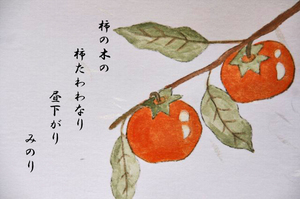 柿の木の
柿たわわなり
昼下がり
みのり